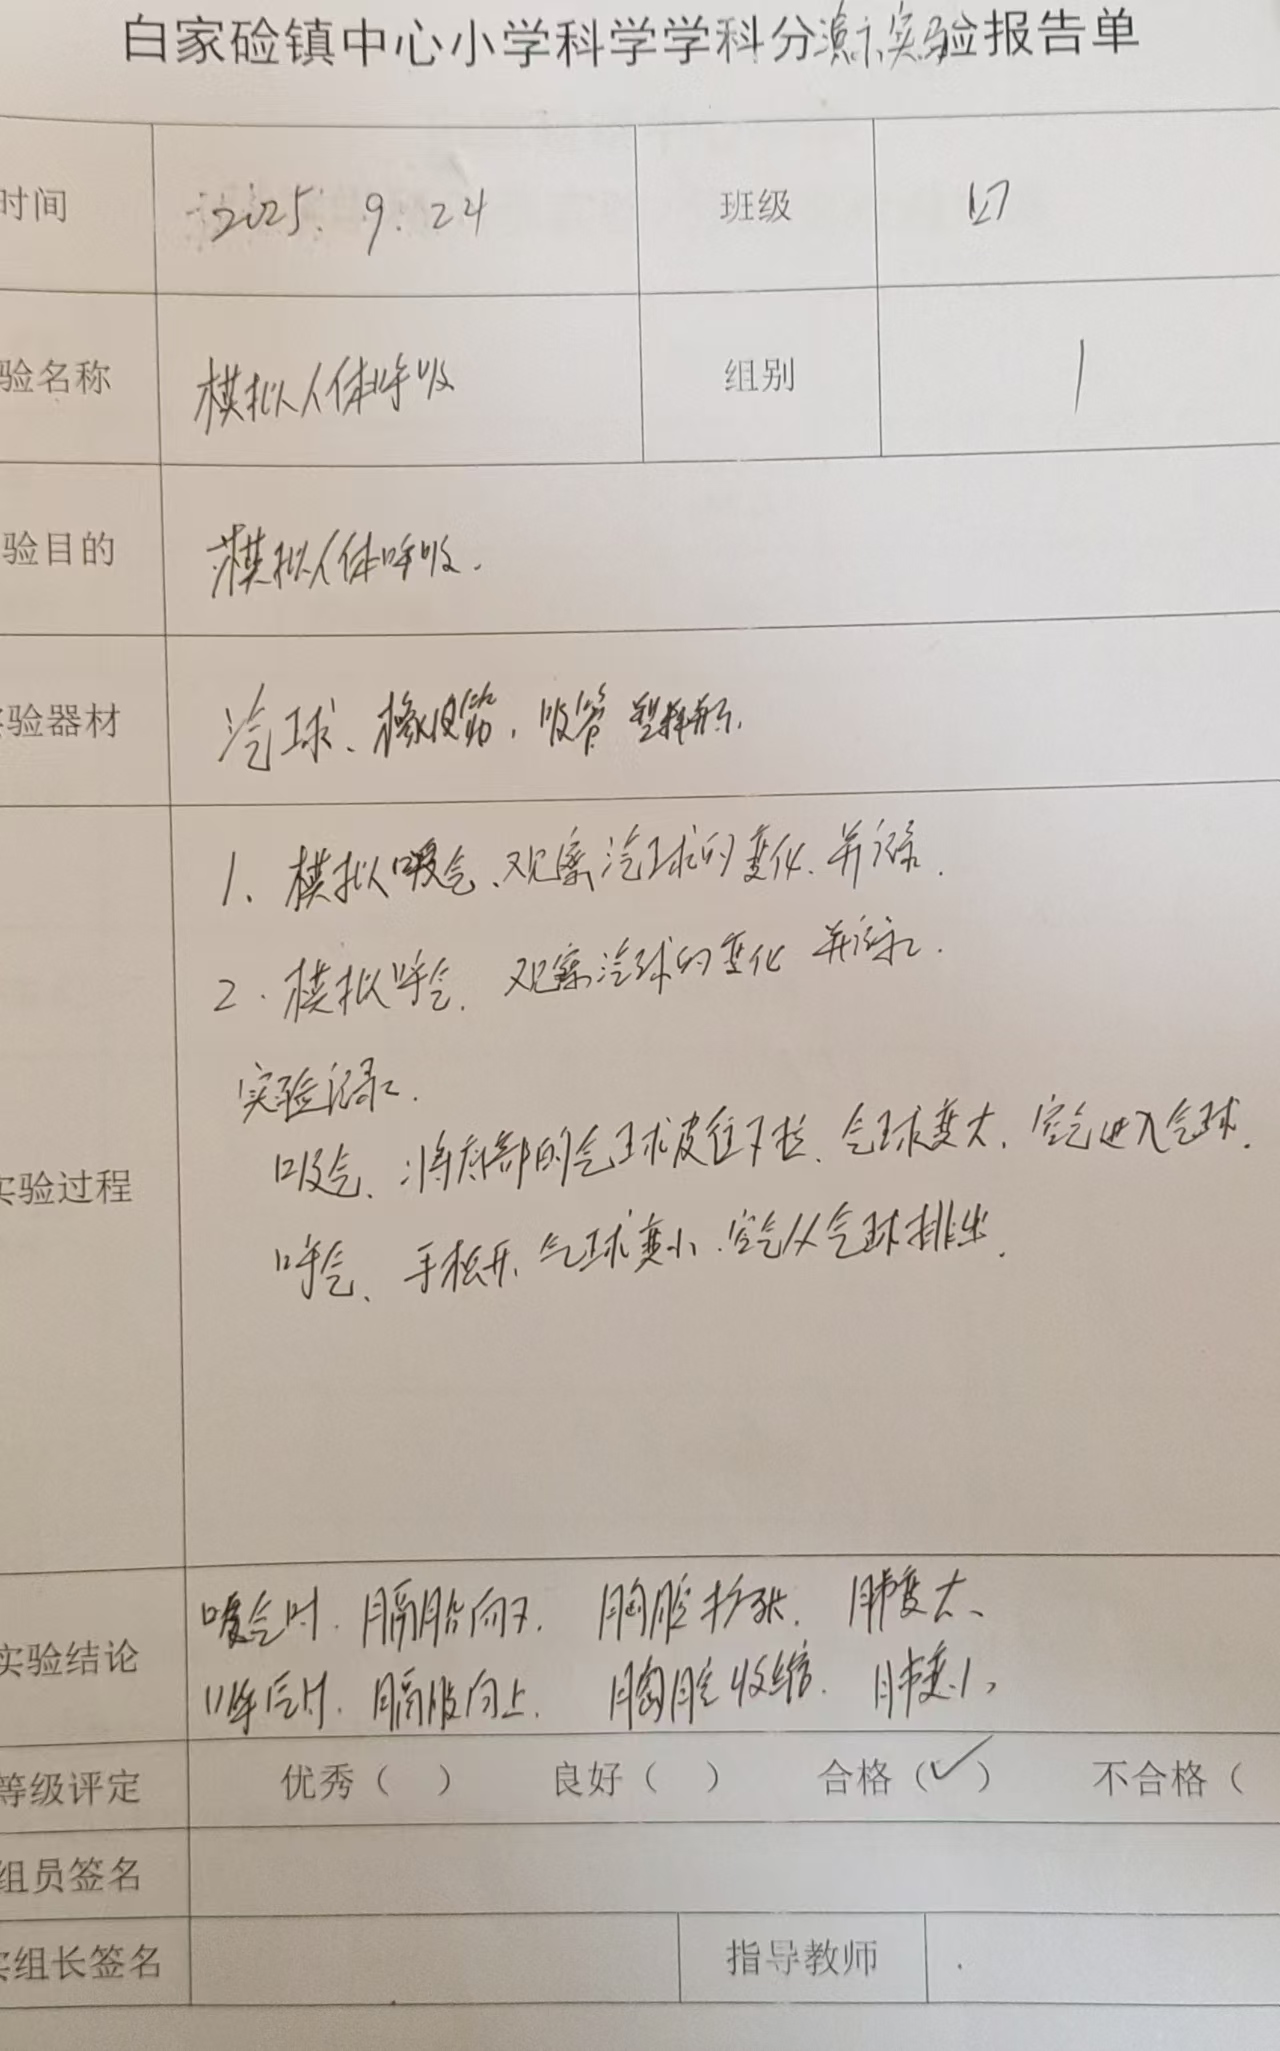 白家硷镇中心小学科学学科分演示实验报告单
时间 2025.9.24 班级 四
验名称 模拟人体呼吸 组别 1
验目的 模拟人体呼吸.
验器材 汽球、橡皮筋,吸管 塑料瓶.
1、模拟吸气、观察汽球的变化、并记录.
2.模拟呼气、观察汽球的变化 并记录.
实验记录.
吸气、将底部的气球皮往下拉、气球变大,空气进入气球.
实验过程
呼气、手松开、气球变小.空气从气球排出.
吸气时.膈肌向下. 胸腔扩张. 肺变大、
实验结论
呼气时.膈肌向上. 胸腔收缩. 肺变小,
等级评定 优秀( ) 良好( ) 合格(✓) 不合格(
组员签名
组长签名 指导教师